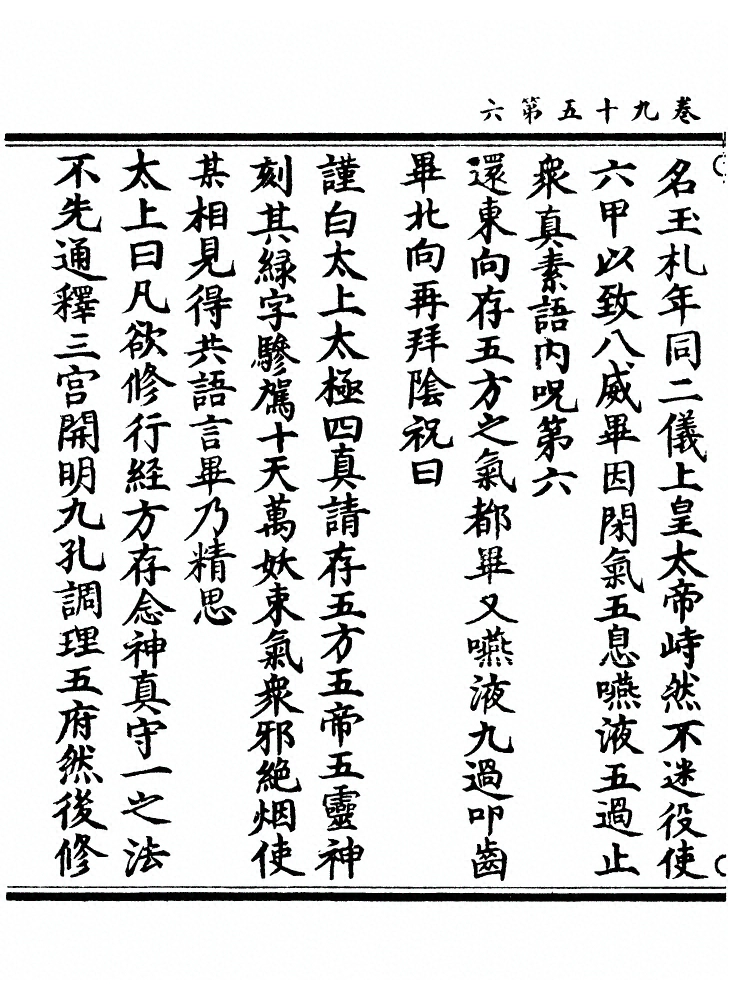 卷九十五第六
名玉札年同二儀上皇太帝峙然不迷役使
六甲以致八威畢因閉氣五息嚥液五過止
衆真素語內呪第六
還東向存五方之氣都畢又嚥液九過叩齒
畢北向再拜陰祝曰
謹白太上太極四真請存五方五帝五靈神
刻其緑字驂駕十天萬妖束氣衆邪絶烟使
某相見得共語言畢乃精思
太上曰凡欲修行経方存念神真守一之法
不先通釋三宮開明九孔調理五府然後修